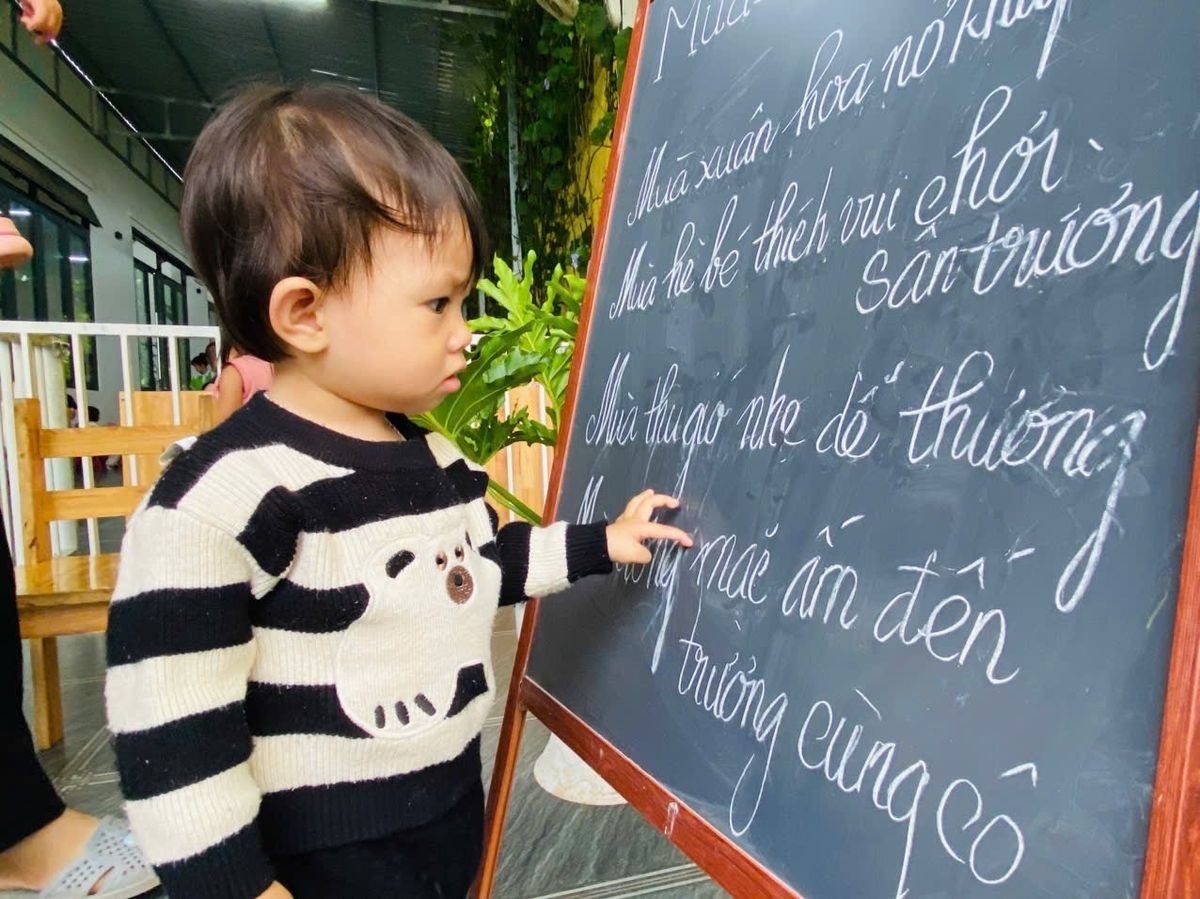 Mùa xuân hoa nở khắp
Mùa hè bé thích vui chơi
sân trường
Mùa thu gió nhẹ dễ thương
mặc ấm đến
trường cùng cô